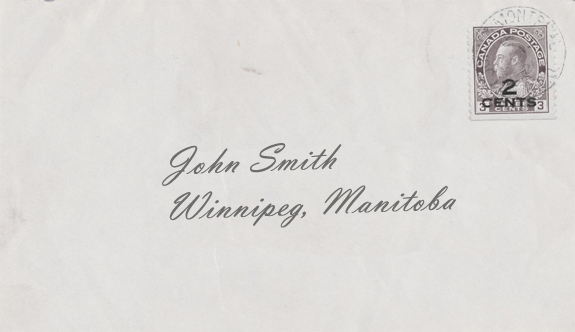 MONTREAL
CANADA POSTAGE
2
CENTS
3 CENTS 3
John Smith
Winnipeg, Manitoba